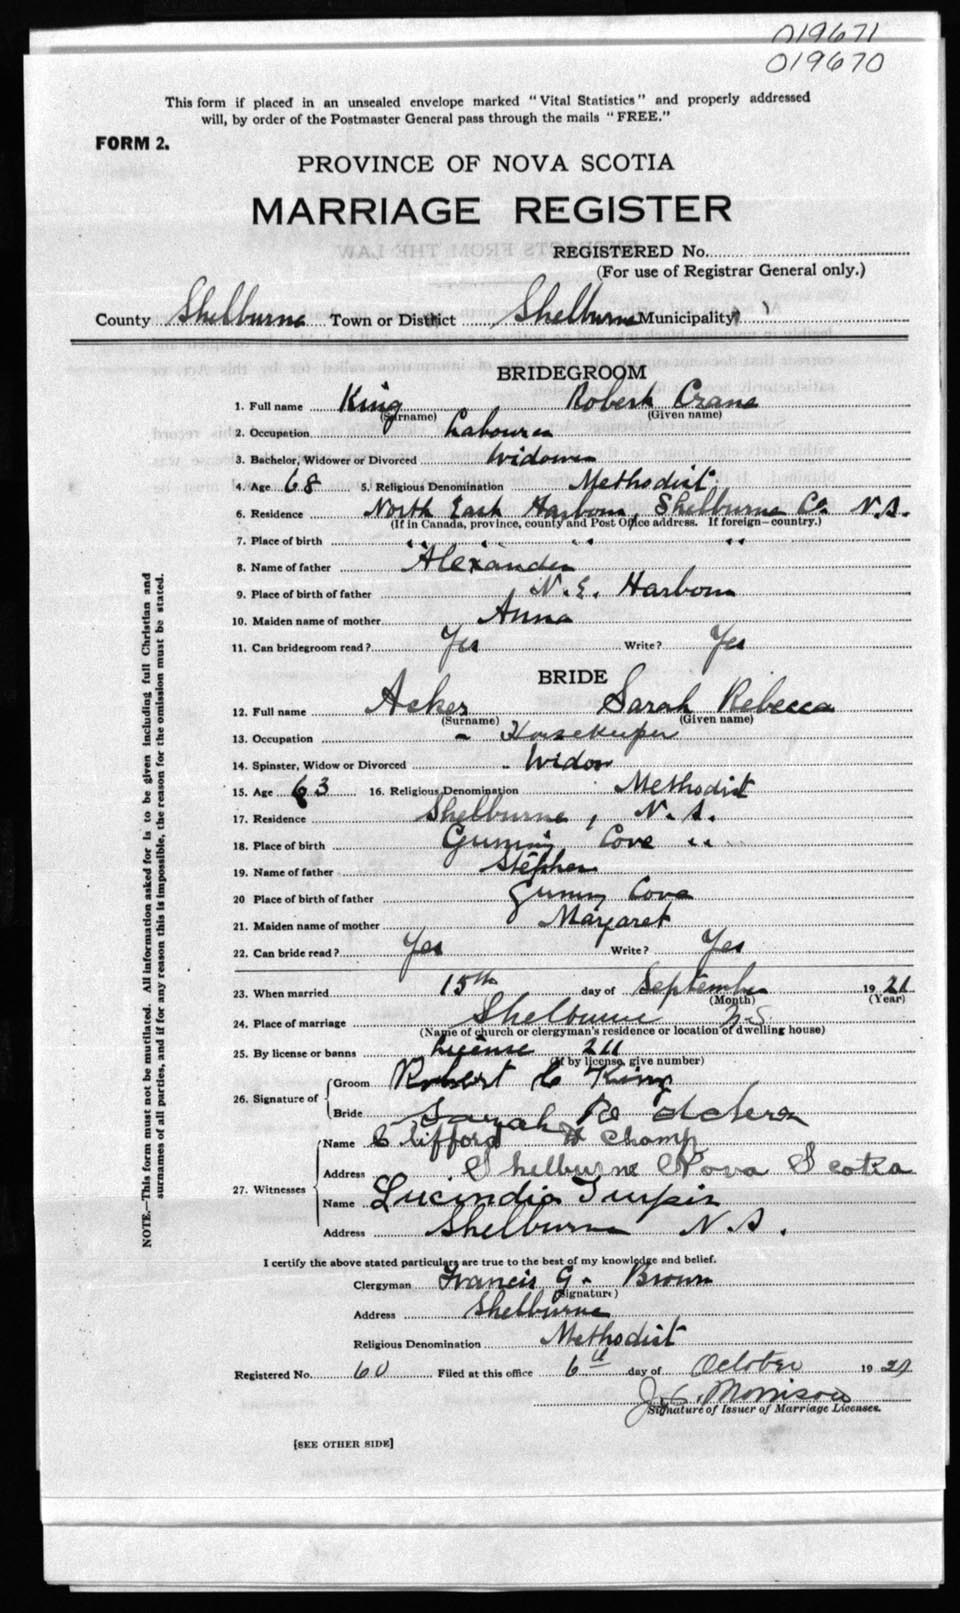 019671
019670
This form if placed in an unsealed envelope marked "Vital Statistics" and properly addressed
will, by order of the Postmaster General pass through the mails "FREE."
FORM 2.
PROVINCE OF NOVA SCOTIA
MARRIAGE REGISTER
REGISTERED No.
(For use of Registrar General only.)
County Shelburne Town or District Shelburne Municipality
BRIDEGROOM
1. Full name King Robert Crane
(Surname) (Given name)
2. Occupation Labourer
3. Bachelor, Widower or Divorced Widower
4. Age 68 5. Religious Denomination Methodist
6. Residence North East Harbour, Shelburne Co. N.S.
(If in Canada, province, county and Post Office address. If foreign—country.)
7. Place of birth " " " "
8. Name of father Alexander
9. Place of birth of father N.E. Harbour
10. Maiden name of mother Anna
11. Can bridegroom read? Yes Write? Yes
BRIDE
12. Full name Acker Sarah Rebecca
(Surname) (Given name)
13. Occupation Housekeeper
14. Spinster, Widow or Divorced Widow
15. Age 63 16. Religious Denomination Methodist
17. Residence Shelburne, N.S.
18. Place of birth Cove "
19. Name of father Stephen
20 Place of birth of father Cove
21. Maiden name of mother Margaret
22. Can bride read? Yes Write? Yes
23. When married 15th day of September 1921
(Month) (Year)
24. Place of marriage Shelburne N.S.
(Name of church or clergyman's residence or location of dwelling house)
25. By license or banns License 211
(If by license, give number)
26. Signature of
Groom Robert C King
Bride Sarah R Acker
27. Witnesses
Name Clifford H Champ
Address Shelburne Nova Scotia
Name Lucindia Turpin
Address Shelburne N.S.
I certify the above stated particulars are true to the best of my knowledge and belief.
Clergyman Francis G. Brown
(Signature)
Address Shelburne
Religious Denomination Methodist
Registered No. 60 Filed at this office 6th day of October 1921
J. C. Morrison
Signature of Issuer of Marriage Licenses.
[SEE OTHER SIDE]
NOTE.—This form must not be mutilated. All information asked for is to be given including full Christian and
surnames of all parties, and if for any reason this is impossible, the reason for the omission must be stated.